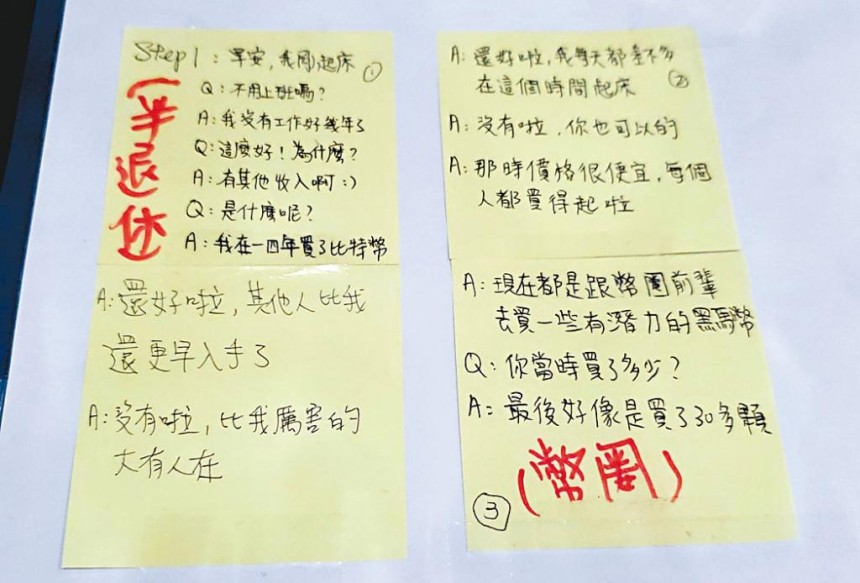 Step 1：早安，我剛起床 ①
Q：不用上班嗎？
A：我沒有工作好幾年了
Q：這麼好！為什麼？
A：有其他收入啊：）
Q：是什麼呢？
A：我在一四年買了比特幣
（半退休
A：還好啦，其他人比我
還更早入手了
A：沒有啦，比我厲害的
大有人在
A：還好啦，我每天都差不多
在這個時間起床 ②
A：沒有啦，你也可以的
A：那時價格很便宜，每個
人都買得起啦
A：現在都是跟幣圈前輩
去買一些有潛力的黑馬幣
Q：你當時買了多少？
A：最後好像是買了30多顆
（幣圈）
③